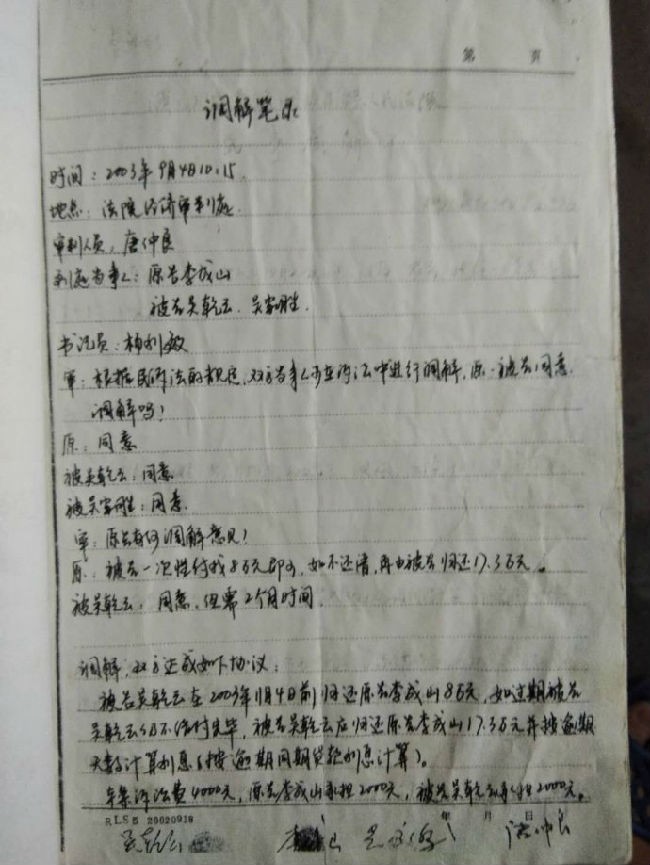 第 页
调解笔录
时间：2003年9月4日10:15
地点：法院经济审判庭
审判人员：唐仲良
到庭当事人：原告李成山
被告吴乾云、吴家胜
书记员：杨利敏
审：根据民诉法的规定，双方当事人可在诉讼中进行调解，原、被告同意
调解吗？
原：同意
被吴乾云：同意
被吴家胜：同意
审：原告有何调解意见？
原：被告一次性付我8万元即可，如不还清，再由被告归还17.3万元。
被吴乾云：同意，但需2个月时间
调解，双方达成如下协议：
被告吴乾云在2003年11月4日前归还原告李成山8万元，如过期被告
吴乾云仍不给付完毕，被告吴乾云应归还原告李成山17.3万元并按逾期
天数计算利息（按逾期同期贷款利息计算）。
本案诉讼费4000元，原告李成山承担2000元，被告吴乾云承担2000元。
RLS5 20020918 年 月 日
吴乾云 唐仲良